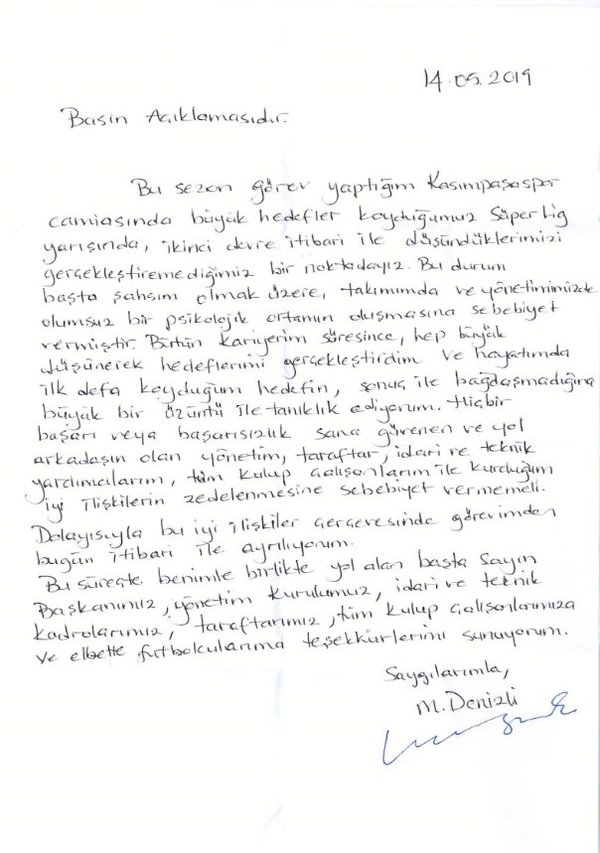 14.05.2019
Basın Açıklamasıdır.
Bu sezon görev yaptığım Kasımpaşaspor
camiasında büyük hedefler koyduğumuz Süper Lig
yarışında, ikinci devre itibari ile düşündüklerimizi
gerçekleştiremediğimiz bir noktadayız. Bu durum
başta şahsım olmak üzere, takımımda ve yönetimimizde
olumsuz bir psikolojik ortamın oluşmasına sebebiyet
vermiştir. Bütün kariyerim süresince, hep büyük
düşünerek hedeflerimi gerçekleştirdim ve hayatımda
ilk defa koyduğum hedefin, sonuç ile bağdaşmadığına
büyük bir üzüntü ile tanıklık ediyorum. Hiçbir
başarı veya başarısızlık sana güvenen ve yol
arkadaşın olan yönetim, taraftar, idari ve teknik
yardımcılarım, tüm kulüp çalışanlarım ile kurduğum
iyi ilişkilerin zedelenmesine sebebiyet vermemeli.
Dolayısıyla bu iyi ilişkiler çerçevesinde görevimden
bugün itibari ile ayrılıyorum.
Bu süreçte benimle birlikte yol alan başta Sayın
Başkanımız, yönetim kurulumuz, idari ve teknik
kadrolarımız, taraftarımız, tüm kulüp çalışanlarımıza
ve elbette futbolcularıma teşekkürlerimi sunuyorum.
Saygılarımla,
M. Denizli